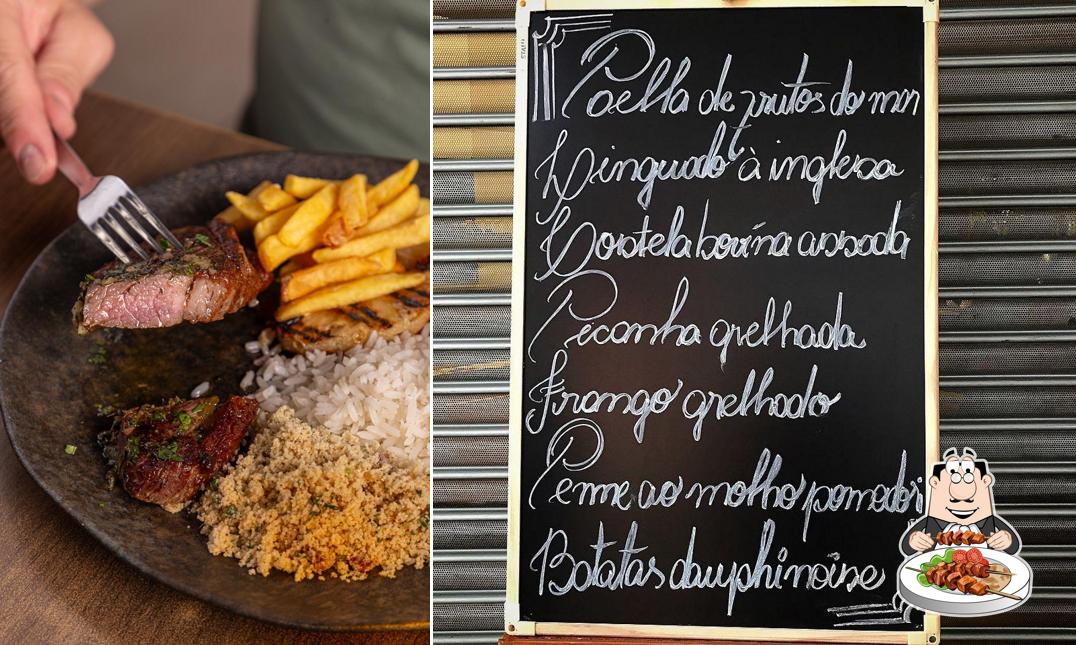 Paella de frutos do mar
Linguado à inglesa
Costela bovina assada
Picanha grelhada
Frango grelhado
Penne ao molho pomodori
Batatas dauphinoise